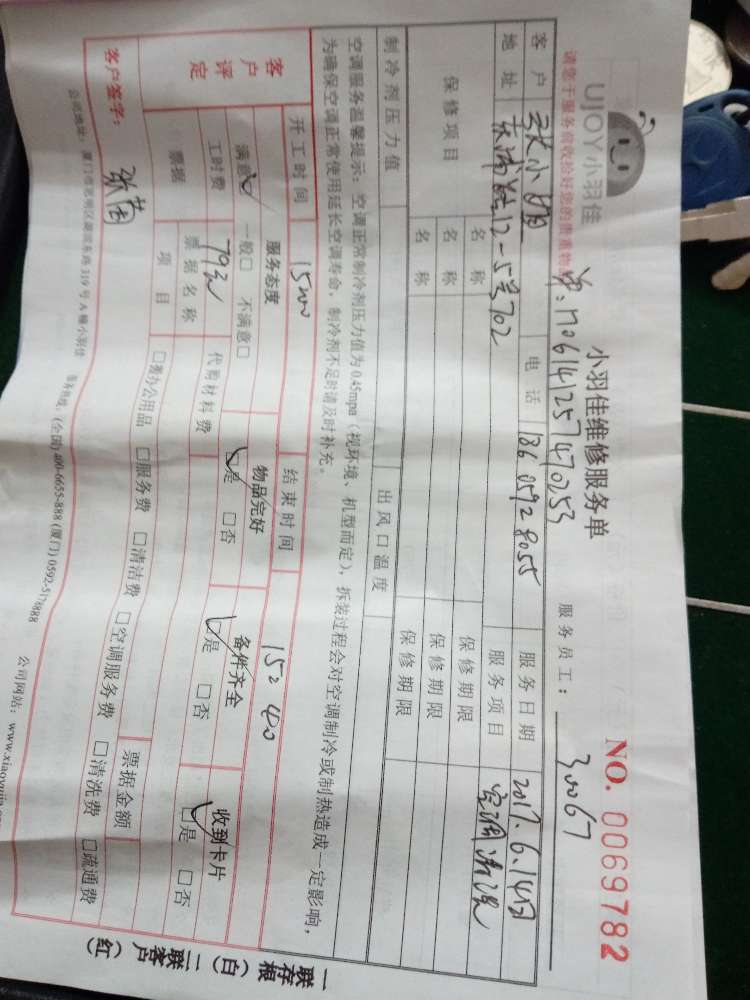 UJOY小羽佳
小羽佳维修服务单
NO. 0069782
请您于服务前收拾好您的贵重物
单:1706141257470253
服务员工: 30067
客户 电话 186 0592 8055 服务日期 2017.6.14日
地址 12-5号702 服务项目 空调清洗
保修项目 名称 保修期限
名称 保修期限
名称 保修期限
制冷剂压力值 出风口温度
空调服务温馨提示:空调正常制冷剂压力值为0.45mpa(视环境、机型而定),拆装过程会对空调制冷或制热造成一定影响,
为确保空调正常使用延长空调寿命,制冷剂不足时请及时补充。
客户评定
开工时间 15:00 结束时间 15:40
服务态度 物品完好 备件齐全 收到卡片
满意☑ 一般□ 不满意□ ☑是 □否 ☑是 □否 ☑是 □否
工时费 79元 代购材料费
票据 票据名称 票据金额
项目 □费办公用品 □服务费 □清洁费 □空调服务费 □清洗费 □疏通费
客户签字:
公司地址:厦门市思明区湖滨东路319号A幢小羽佳 服务热线:(全国)400-6655-888(厦门)0592-5178888 公司网站:www.xiaoyujia.com
一联存根(白) 二联客户(红)